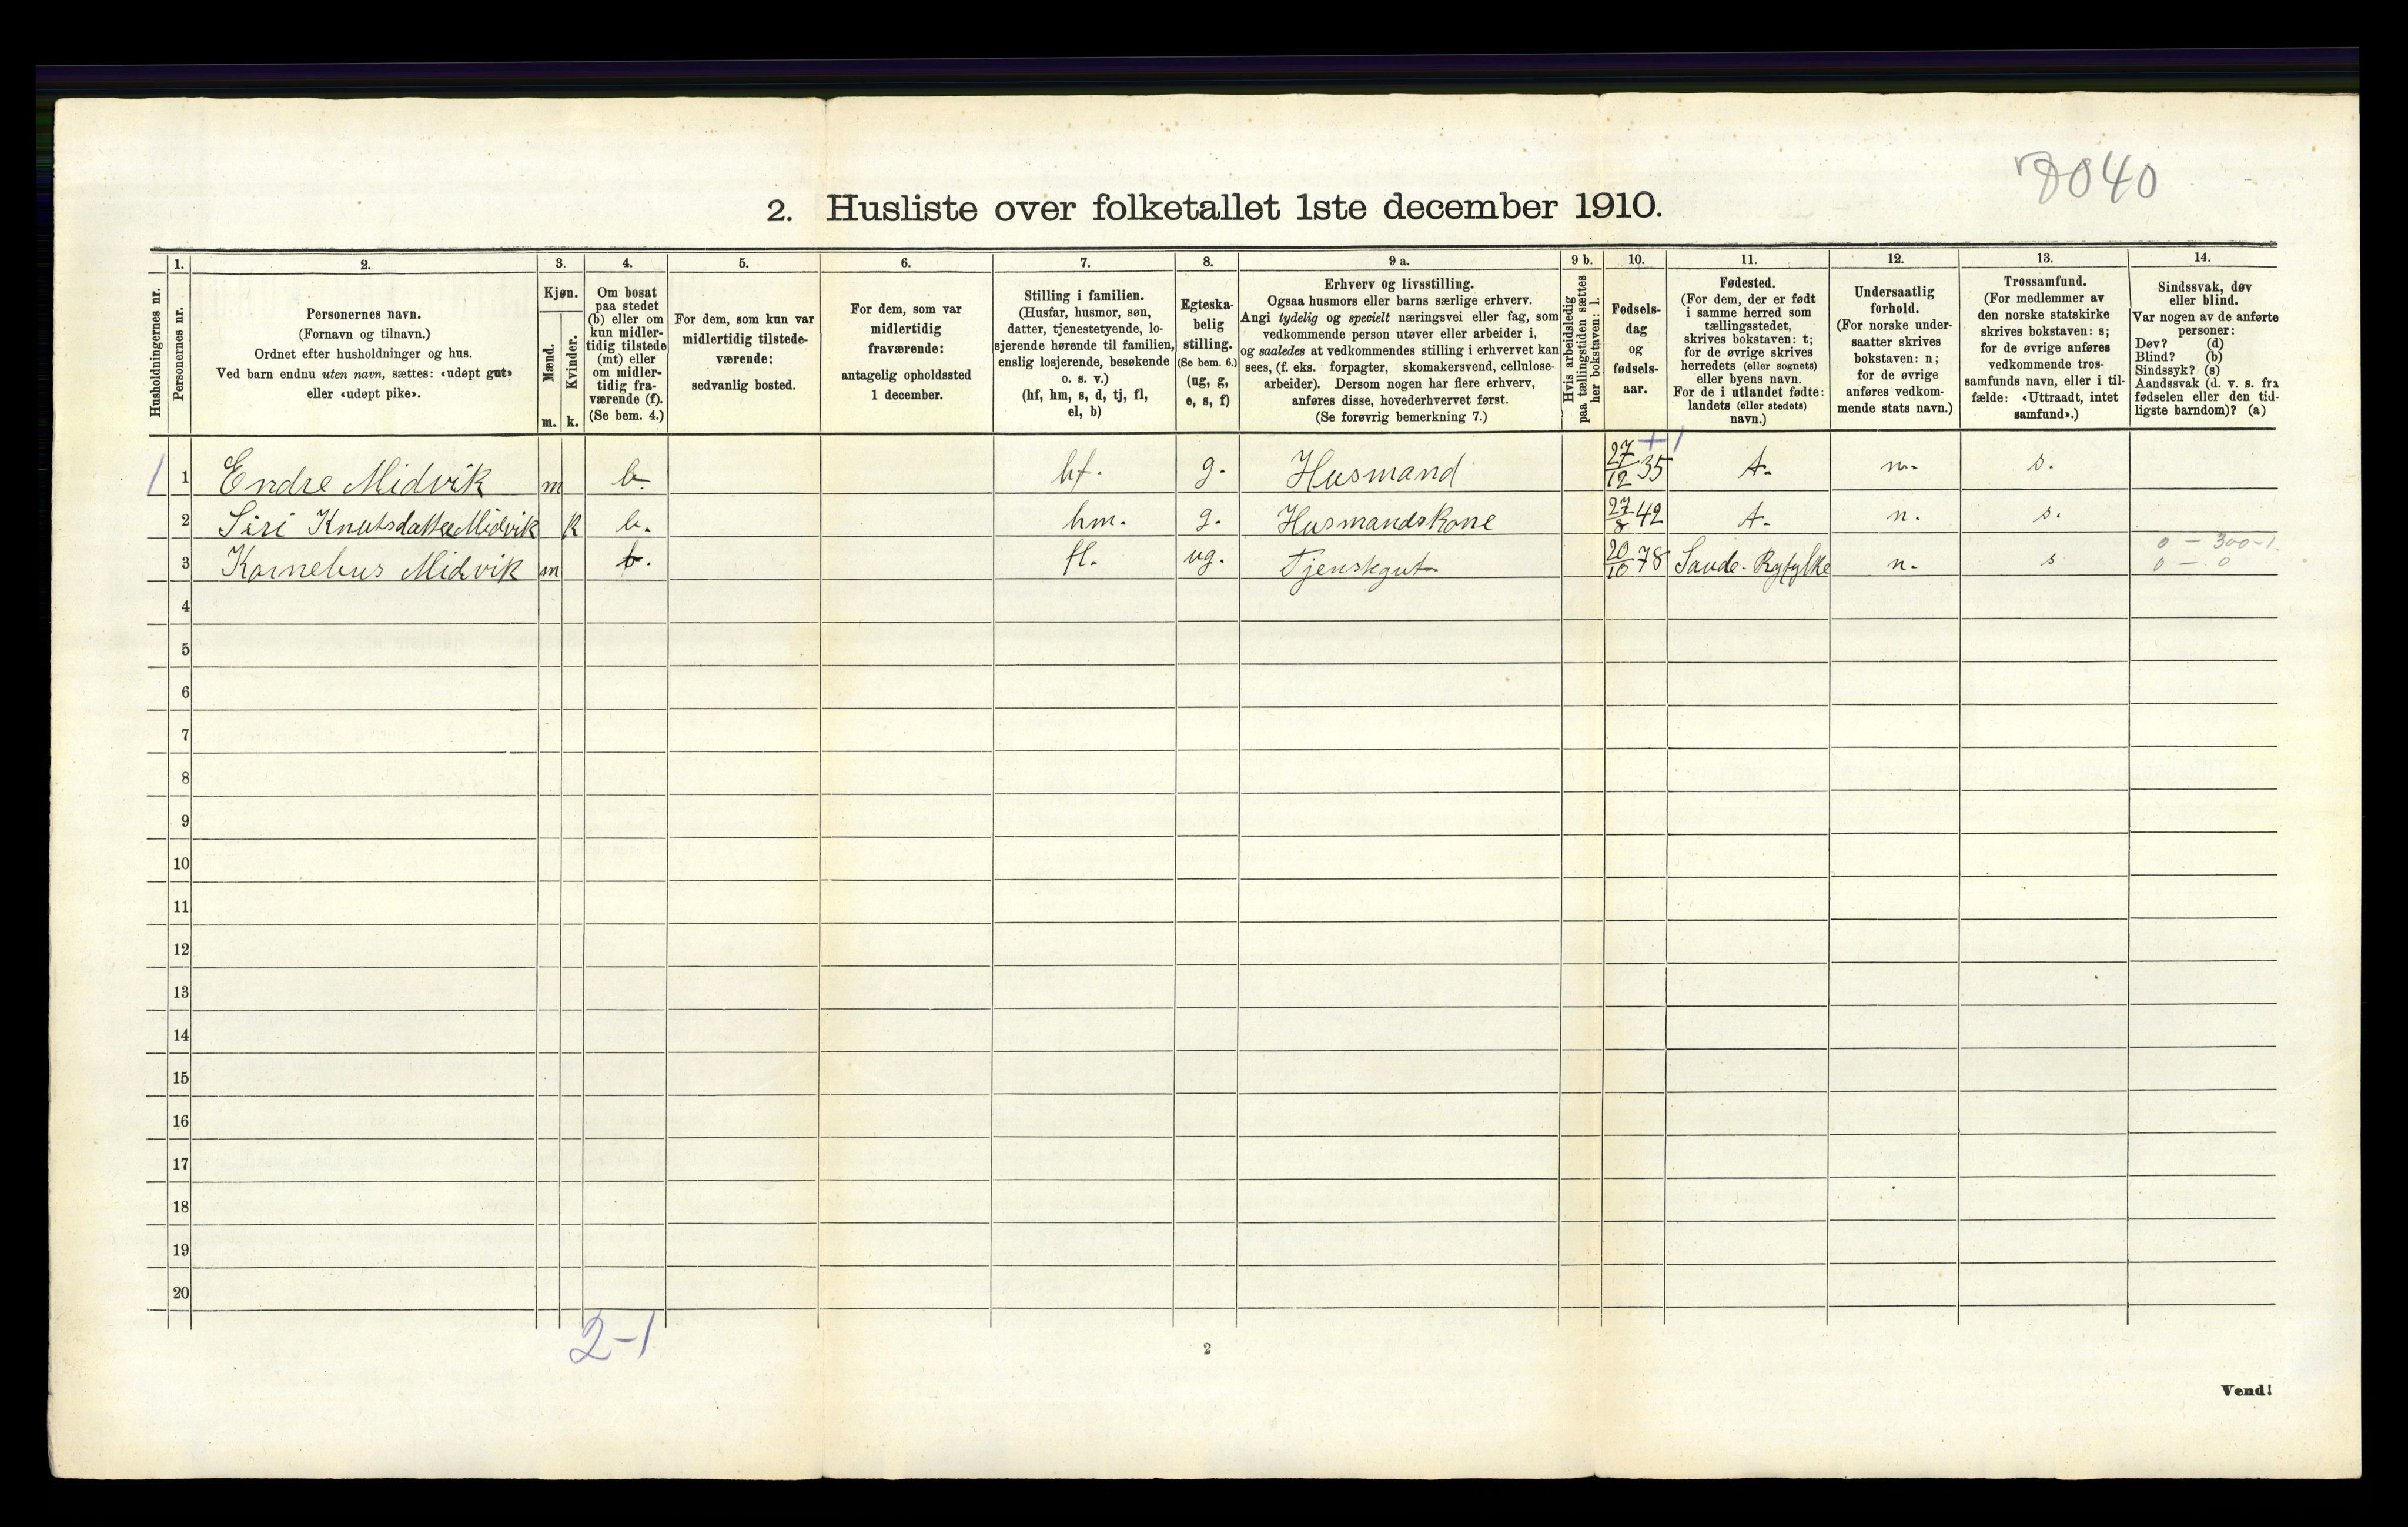 8040
2. Husliste over folketallet 1ste december 1910.
Husholdningernes nr.
1.
Personernes nr.
2.
Personernes navn.
(Fornavn og tilnavn.)
Ordnet efter husholdninger og hus.
Ved barn endnu uten navn, sættes: «udøpt gut»
eller «udøpt pike».
3.
Kjøn.
Mænd.
m.
Kvinder.
k.
4.
Om bosat
paa stedet
(b) eller om
kun midler-
tidig tilstede
(mt) eller
om midler-
tidig fra-
værende (f).
(Se bem. 4.)
5.
For dem, som kun var
midlertidig tilstede-
værende:
sedvanlig bosted.
6.
For dem, som var
midlertidig
fraværende:
antagelig opholdssted
1 december.
7.
Stilling i familien.
(Husfar, husmor, søn,
datter, tjenestetyende, lo-
sjerende hørende til familien,
enslig losjerende, besøkende
o. s. v.)
(hf, hm, s, d, tj, fl,
el, b)
8.
Egteska-
belig
stilling.
(Se bem. 6.)
(ug, g,
e, s, f)
9 a.
Erhverv og livsstilling.
Ogsaa husmors eller barns særlige erhverv.
Angi tydelig og specielt næringsvei eller fag, som
vedkommende person utøver eller arbeider i,
og saaledes at vedkommendes stilling i erhvervet kan
sees, (f. eks. forpagter, skomakersvend, cellulose-
arbeider). Dersom nogen har flere erhverv,
anføres disse, hovederhvervet først.
(Se forøvrig bemerkning 7.)
9 b.
Hvis arbeidsledig
paa tællingstiden sættes
her bokstaven: l.
10.
Fødsels-
dag
og
fødsels-
aar.
11.
Fødested.
(For dem, der er født
i samme herred som
tællingsstedet,
skrives bokstaven: t;
for de øvrige skrives
herredets (eller sognets)
eller byens navn.
For de i utlandet fødte:
landets (eller stedets)
navn.)
12.
Undersaatlig
forhold.
(For norske under-
saatter skrives
bokstaven: n;
for de øvrige
anføres vedkom-
mende stats navn.)
13.
Trossamfund.
(For medlemmer av
den norske statskirke
skrives bokstaven: s;
for de øvrige anføres
vedkommende tros-
samfunds navn, eller i til-
fælde: «Uttraadt, intet
samfund».)
14.
Sindssvak, døv
eller blind.
Var nogen av de anførte
personer:
Døv? (d)
Blind? (b)
Sindssyk? (s)
Aandssvak (d. v. s. fra
fødselen eller den tid-
ligste barndom)? (a)
+1
1 1 Endre Midvik m b. hf. g. Husmand 27/12 35 t. n. s.
2 Siri Knutsdatter Midvik k b. hm. g. Husmandskone 27/8 42 t. n. s.
3 Kornelius Midvik m b. fl. ug. Tjenstgut 20/10 78 Saude-Ryfylke n. s 0 - 300-1.
0 - 0
4
5
6
7
8
9
10
11
12
13
14
15
16
17
18
19
20
2-1
2
Vend!